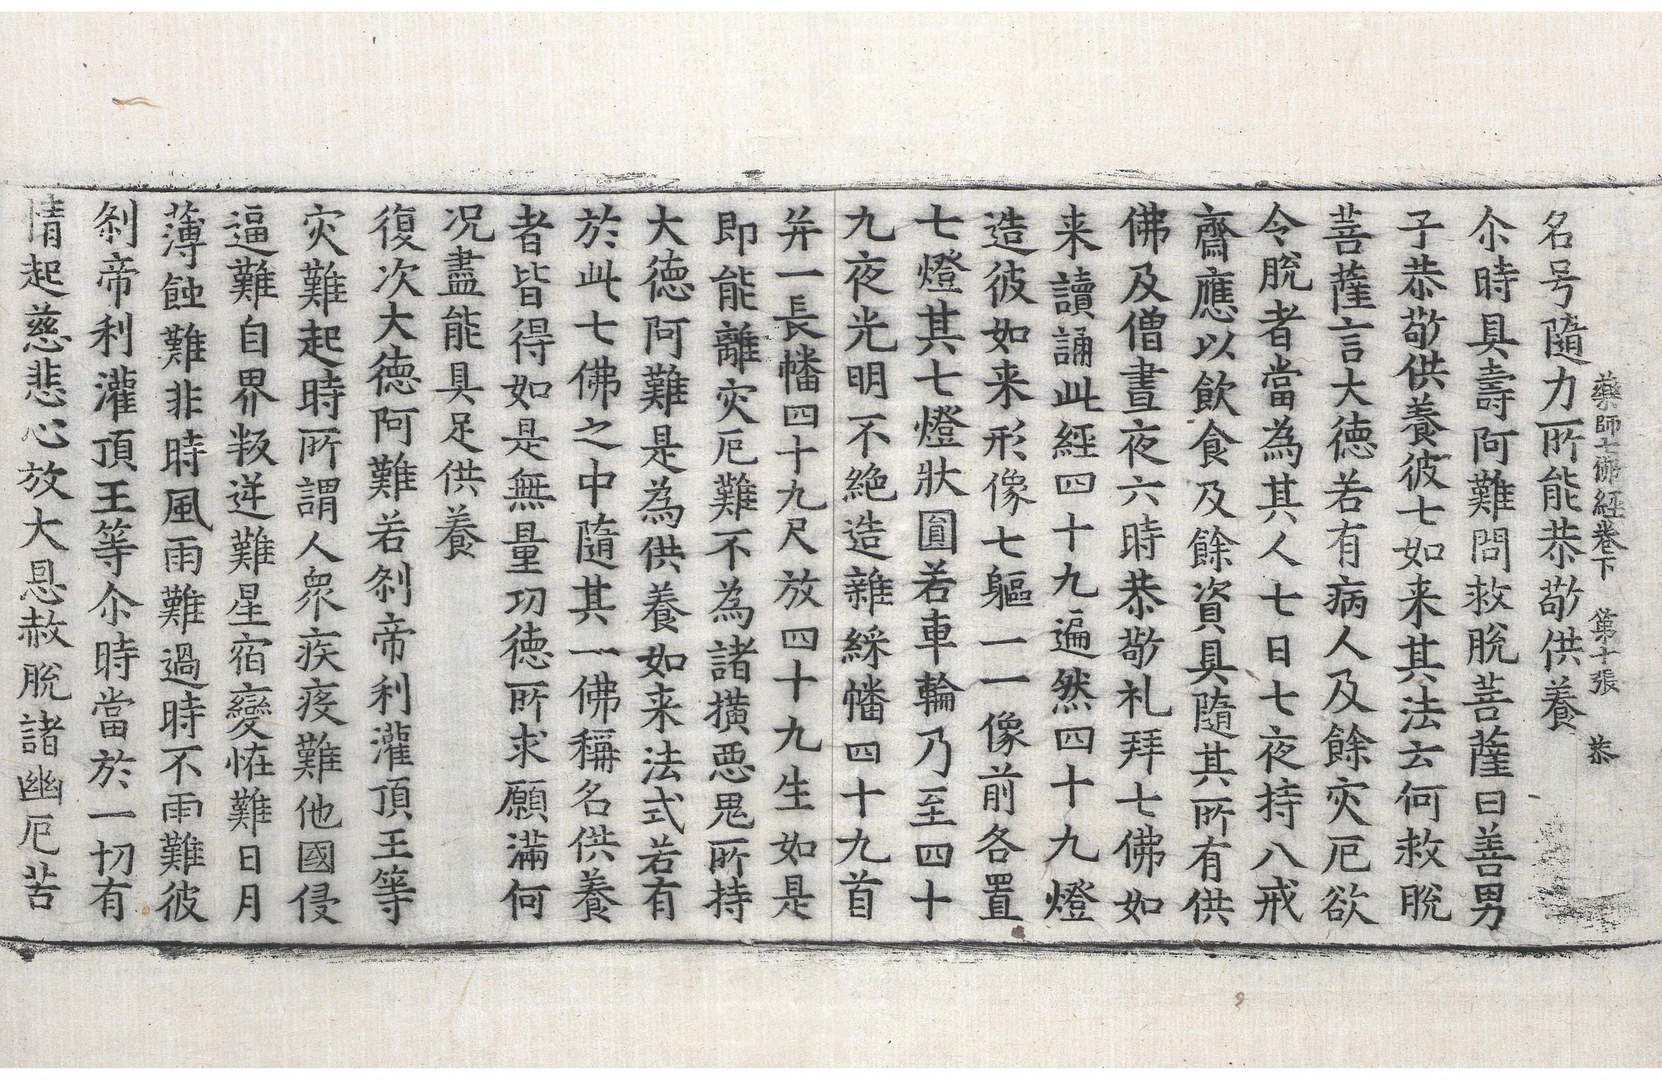 藥師七佛經卷下　第十張　恭
名号隨力所能恭敬供養
尒時具壽阿難問救脫菩薩曰善男
子恭敬供養彼七如来其法云何救脫
菩薩言大德若有病人及餘灾厄欲
令脫者當為其人七日七夜持八戒
齋應以飲食及餘資具隨其所有供
佛及僧晝夜六時恭敬礼拜七佛如
来讀誦此經四十九遍然四十九燈
造彼如来形像七軀一一像前各置
七燈其七燈狀圓若車輪乃至四十
九夜光明不絶造雜綵幡四十九首
并一長幡四十九尺放四十九生如是
即能離灾厄難不為諸横惡鬼所持
大德阿難是為供養如来法式若有
於此七佛之中隨其一佛稱名供養
者皆得如是無量功德所求願滿何
况盡能具足供養
復次大德阿難若剎帝利灌頂王等
灾難起時所謂人衆疾疫難他國侵
逼難自界叛逆難星宿變恠難日月
薄蝕難非時風雨難過時不雨難彼
剎帝利灌頂王等尒時當於一切有
情起慈悲心放大恩赦脫諸幽厄苦